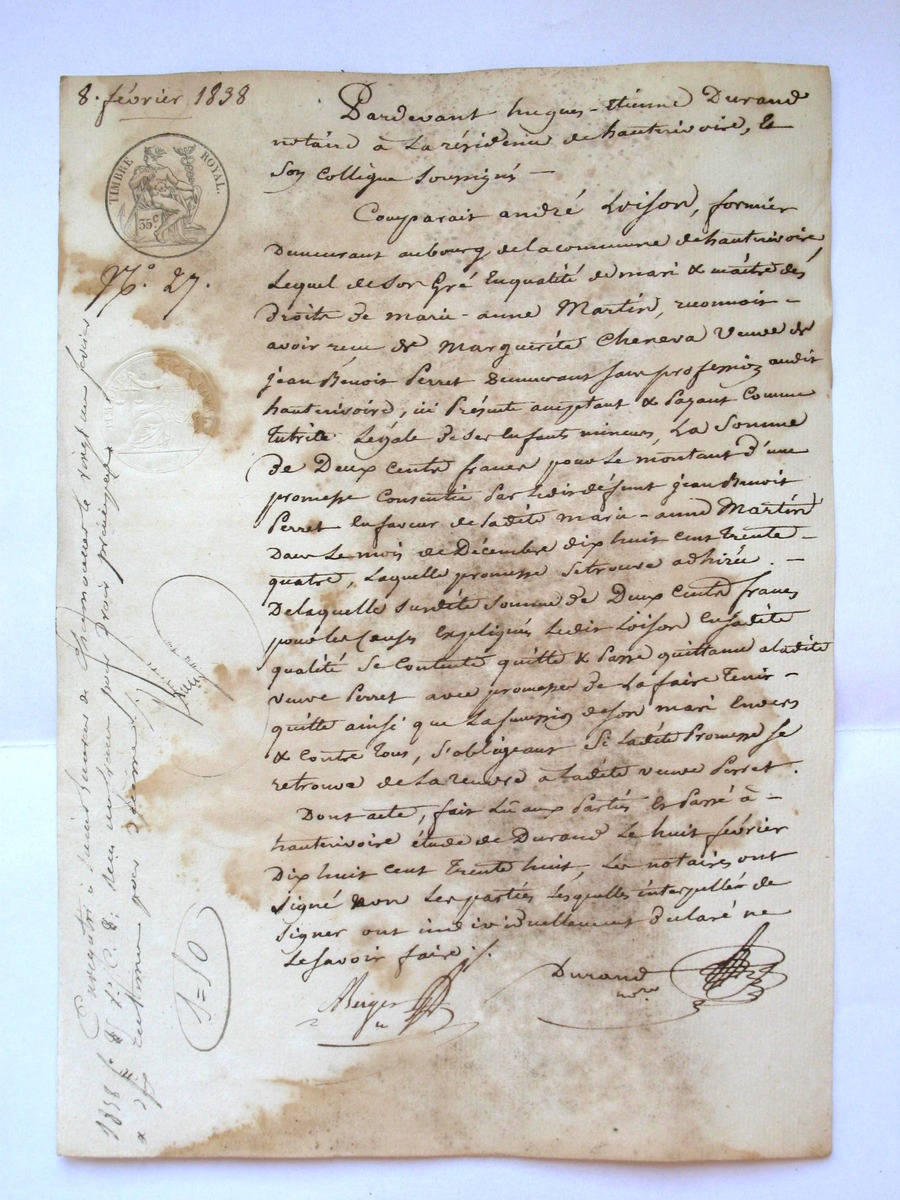 8. février 1838
TIMBRE ROYAL.
35 c
N.° 27.
Pardevant hugues-Etienne Durand
notaire à La résidence de hauterivoire, Et
Son Collègue Soussignés —
Comparait andré Loison, fermier
Demeurant au bourg de la commune de hauterivoire,
Lequel de Son Gré En qualité de mari & maître des
Droits de marie-anne Martin, reconnoit
avoir reçu de Marguérite Cheneva Veuve de
jean Benoit Perret Demeurant Sans profession audit
hauterivoire, ici Présente acceptant & Payant Comme
tutrice Légale de Ses Enfants mineurs, La Somme
de Deux Cents francs pour Le montant d'une
promesse Consentie Par Ledit défunt jean Benoit
Perret En faveur de Ladite marie-anne Martin
Dans Le mois de Décembre dix huit Cent trente-
quatre, Laquelle promesse Se trouve adhirée. —
De laquelle Susdite Somme de Deux Cents francs
pour les Causes Expliquées Ledit Loison En Sadite
qualité Se Contente quitte & Passe quittance a Ladite
veuve Perret avec promesse de La faire tenir-
quitte ainsi que La Succession de Son mari Envers
& Contre tous, S'obligeant Si Ladite Promesse Se
retrouve de La rendre a Ladite veuve Perret.
Dont acte, fait Lu aux Parties Et Passé à-
hauterivoire étude de Durand Le huit février
Dix huit Cent trente huit, Les notaires ont
Signé non Les parties Lesquelles interpellées de
Signer ont individuellement Déclaré ne
Le Savoir faire ./.
Durand
nre
Enregistré à Saint Laurent de Chamousset le vingt un février
1838 f.
pour droit principal
1=10